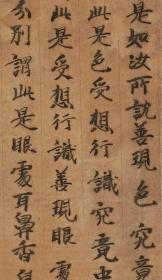 是如汝所說善現色究竟
此是色受想行識究竟
此是受想行識善現眼處
分別謂此是眼處耳鼻